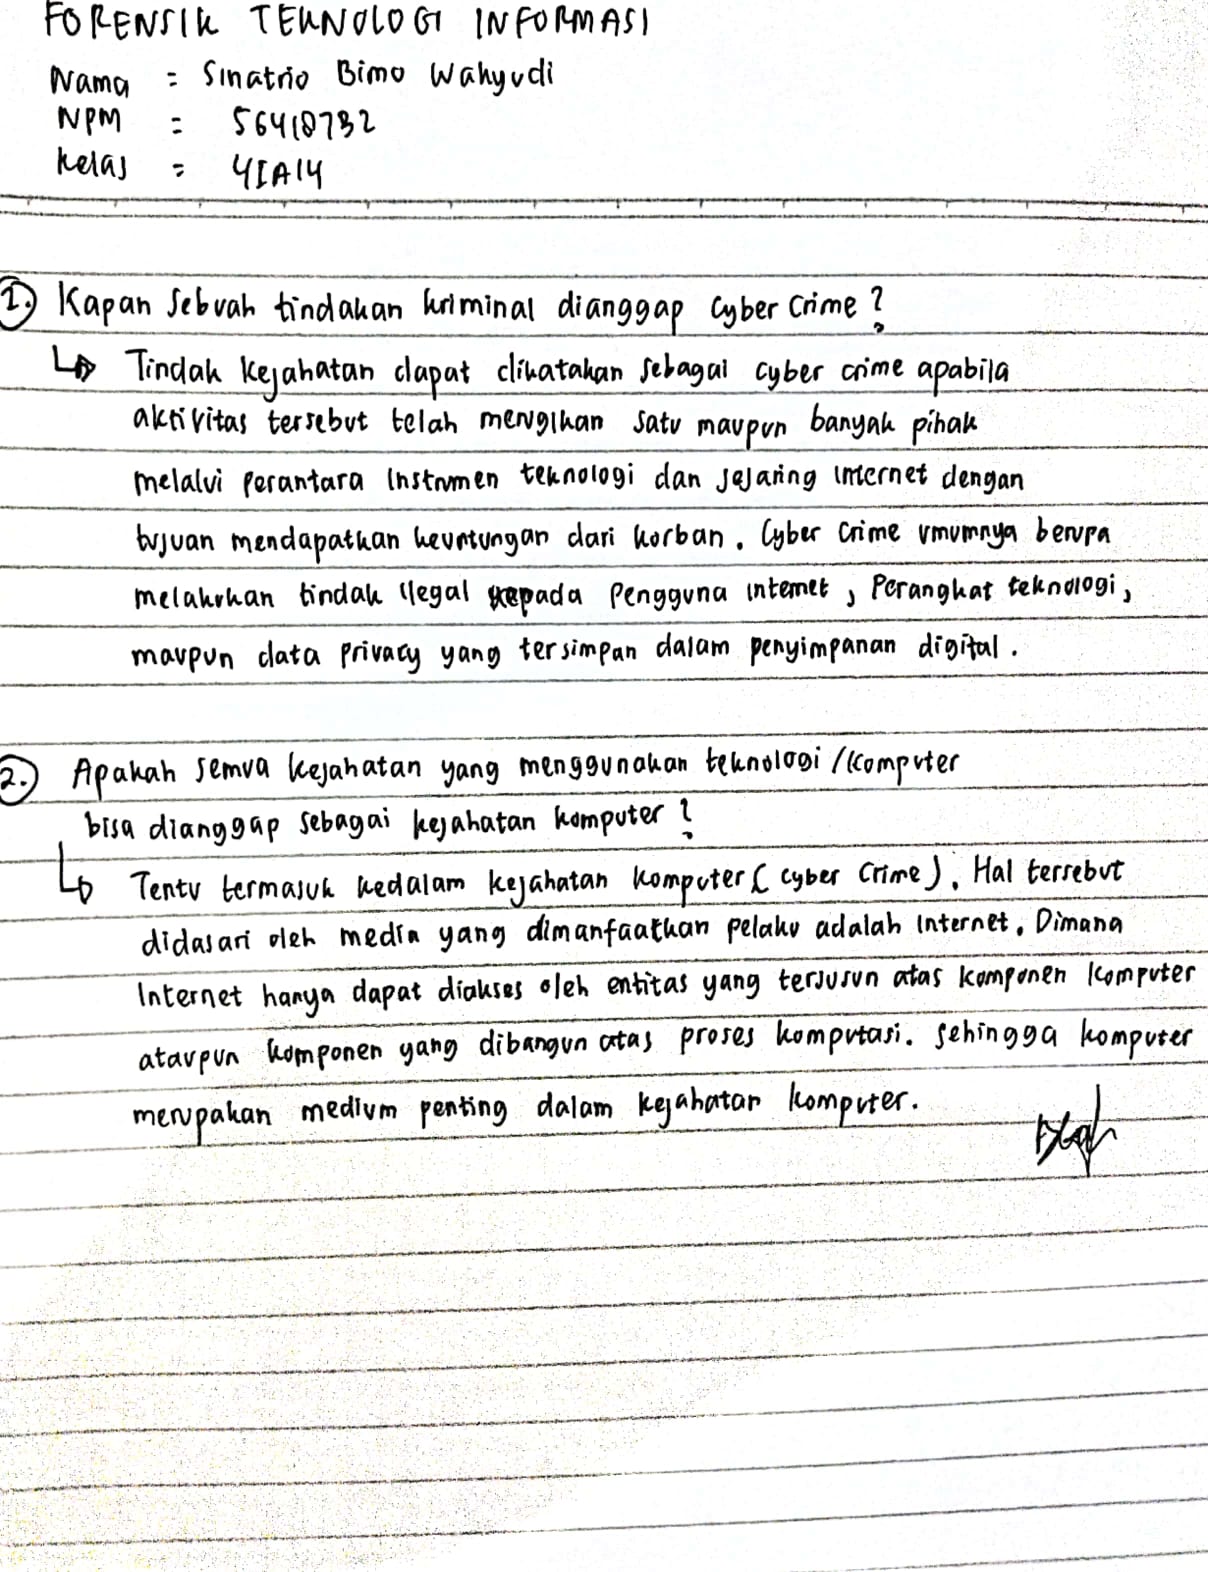 FORENSIK TEKNOLOGI INFORMASI
Nama = Sinatrio Bimo Wahyudi
NPM = 56418732
Kelas = 4IA14
1.) Kapan sebuah tindakan kriminal dianggap Cyber Crime ?
Tindak kejahatan dapat dikatakan sebagai cyber crime apabila
aktivitas tersebut telah merugikan satu maupun banyak pihak
melalui perantara instrumen teknologi dan jejaring internet dengan
tujuan mendapatkan keuntungan dari korban. Cyber Crime umumnya berupa
melakukan tindak ilegal kepada pengguna internet, perangkat teknologi,
maupun data privacy yang tersimpan dalam penyimpanan digital.
2.) Apakah semua kejahatan yang menggunakan teknologi/komputer
bisa dianggap sebagai kejahatan komputer ?
Tentu termasuk kedalam kejahatan komputer ( cyber Crime ). Hal tersebut
didasari oleh media yang dimanfaatkan pelaku adalah internet. Dimana
Internet hanya dapat diakses oleh entitas yang tersusun atas komponen komputer
ataupun komponen yang dibangun atas proses komputasi. sehingga komputer
merupakan medium penting dalam kejahatan komputer.